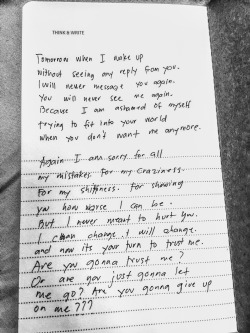 THINK & WRITE
Tomorrow when I wake up
without seeing any reply from you.
I will never message you again.
You will never see me again.
Because I am ashamed of myself
trying to fit into your world
when you don't want me anymore.
Again I am sorry for all
my mistakes. For my craziness.
For my shittiness. For showing
you how worse I can be.
But I never meant to hurt you.
I change. I will change.
and now its your turn to trust me.
Are you gonna trust me?
Or are you just gonna let
me go? Are you gonna give up
on me???